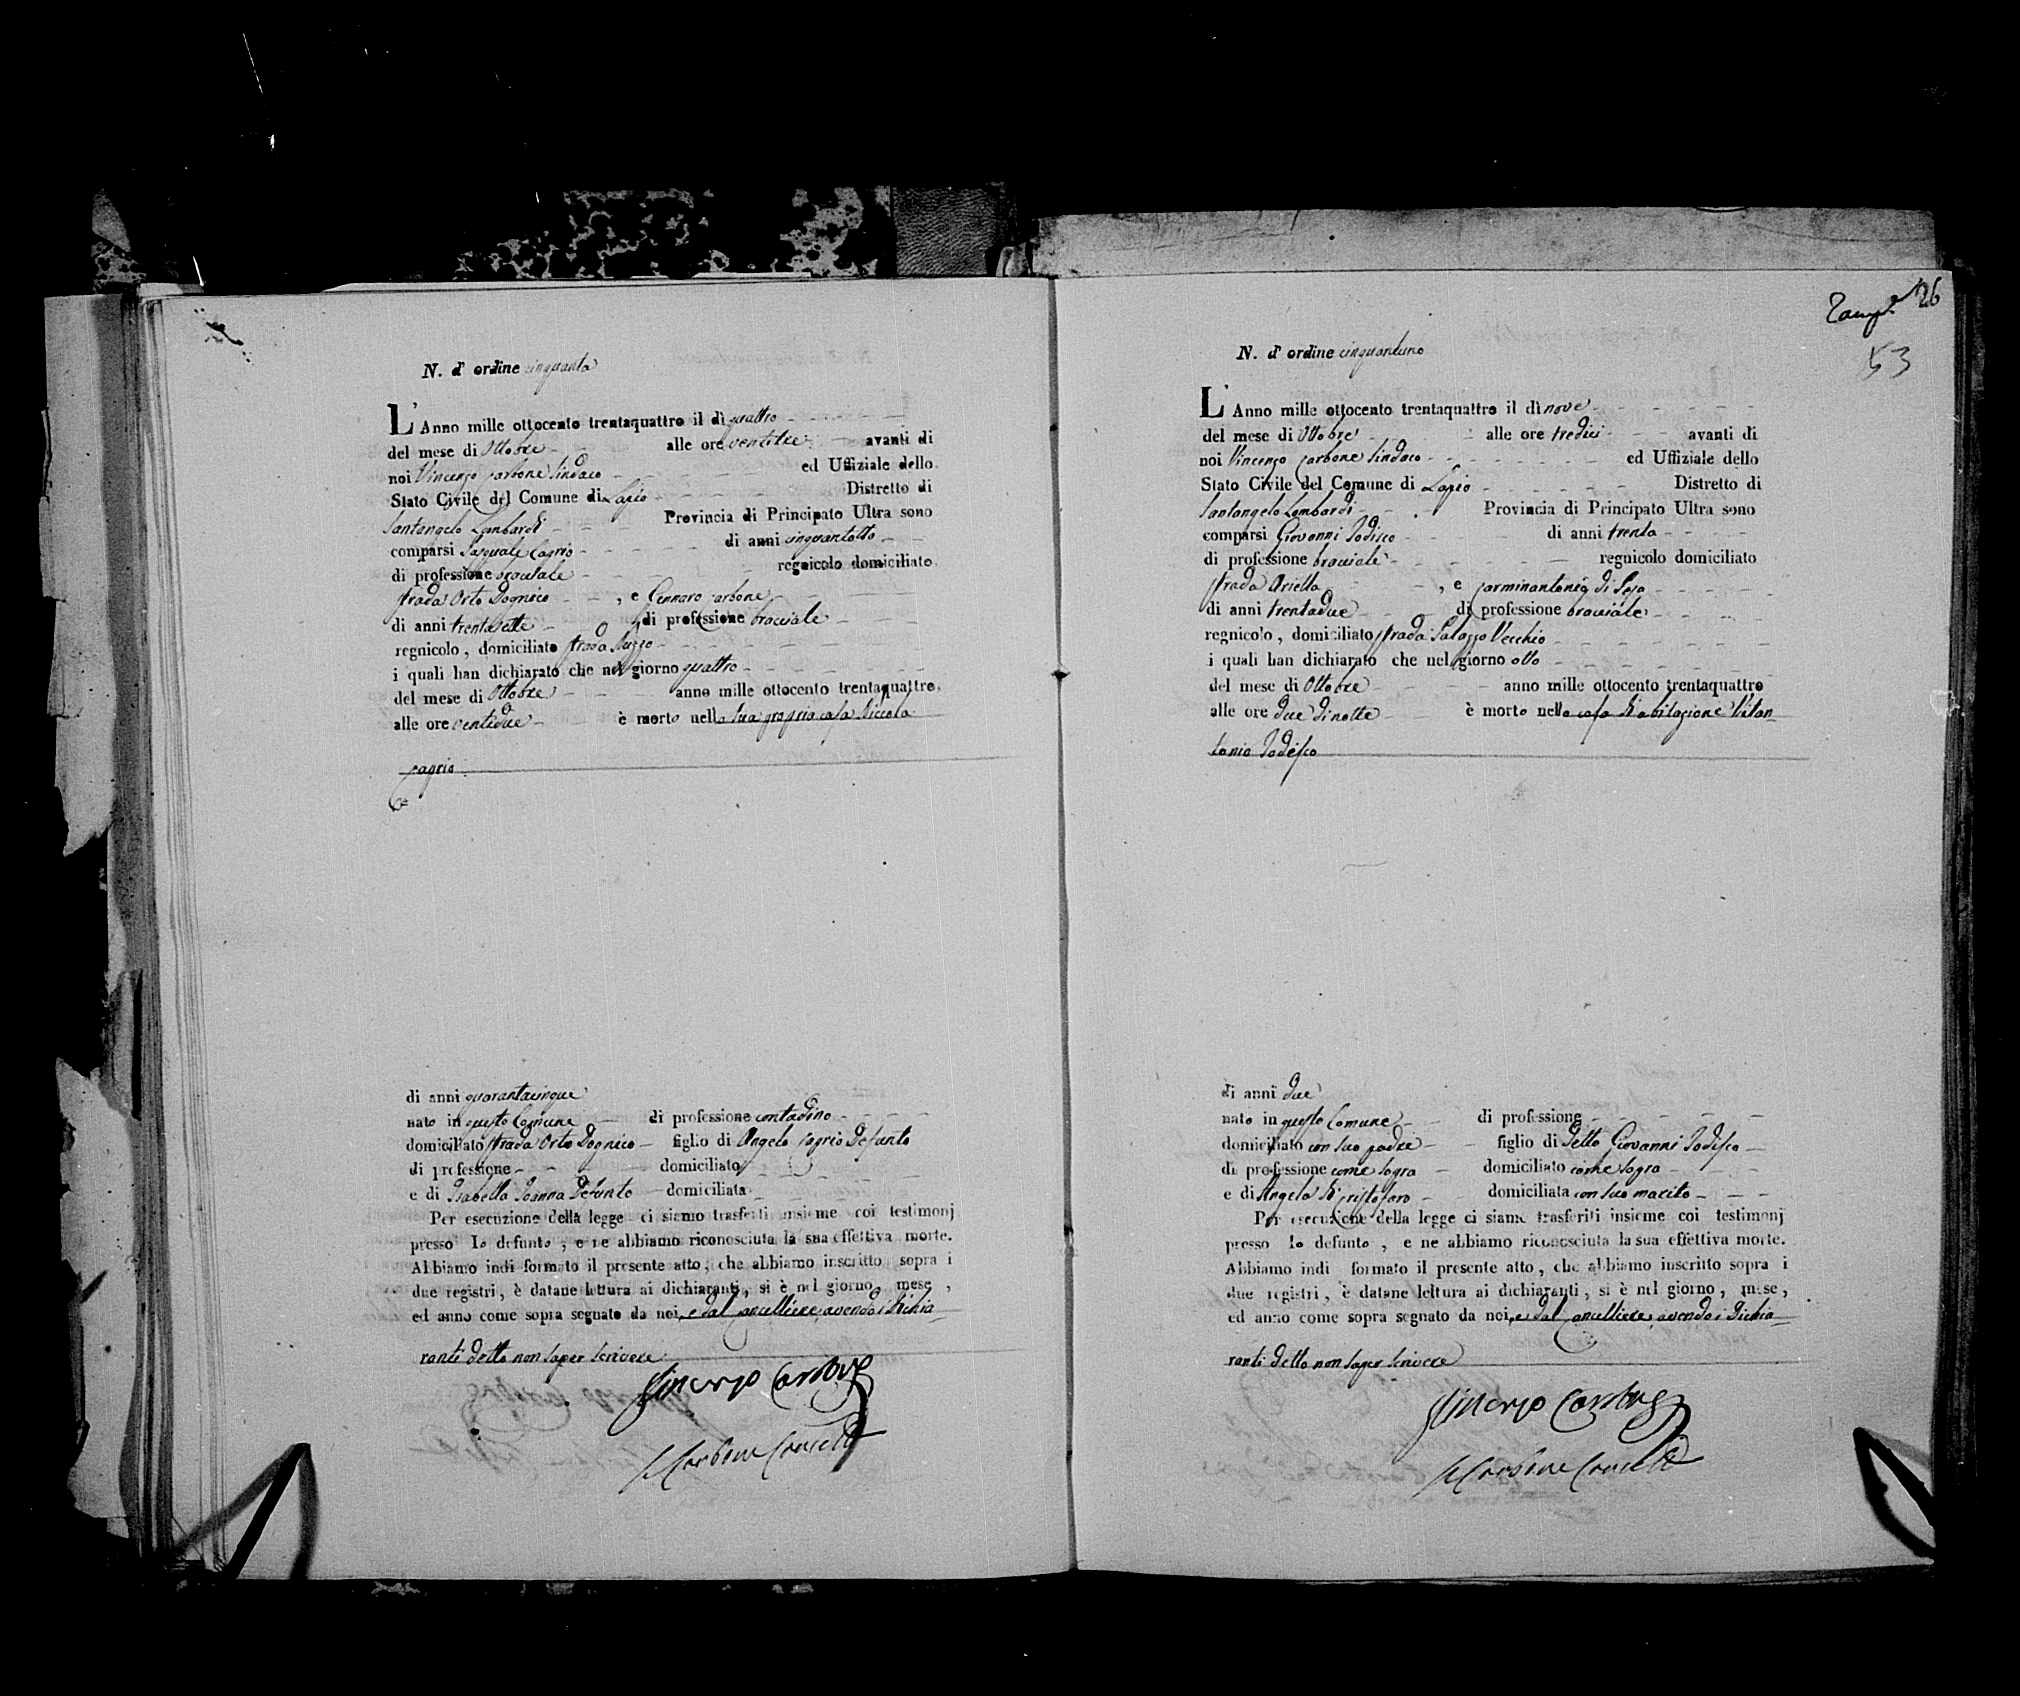 N. d' ordine cinquanta
L'Anno mille ottocento trentaquattro il dì quattro
del mese di Ottobre alle ore ventitre avanti di
noi Vincenzo Carbone Sindaco ed Uffiziale dello
Stato Civile del Comune di Lapio Distretto di
Santangelo Lombardi Provincia di Principato Ultra sono
comparsi Pasquale Caprio di anni cinquantotto
di professione bracciale regnicolo domiciliato
strada Orto Dognico , e Gennaro Carbone
di anni trentasette di professione bracciale
regnicolo , domiciliato strada
i quali han dichiarato che nel giorno quattro
del mese di Ottobre anno mille ottocento trentaquattro,
alle ore ventidue è morto nella sua propria casa Nicola
Caprio
di anni quarantacinque
nato in questo Comune di professione contadino
domiciliato strada Orto Dognico figlio di Angelo Caprio Defunto
di professione domiciliato
e di Isabella Ioanna Defunto domiciliata
Per esecuzione della legge ci siamo trasferiti insieme coi testimonj
presso lo defunto , e ne abbiamo riconosciuta la sua effettiva morte.
Abbiamo indi formato il presente atto , che abbiamo inscritto sopra i
due registri , è datane lettura ai dichiaranti, si è nel giorno, mese ,
ed anno come sopra segnato da noi, e dal Cancelliere, avendo i Dichia
ranti detto non saper scrivere
Vincenzo Carbone
Carbone Cancell
26
53
N. d' ordine cinquantuno
L'Anno mille ottocento trentaquattro il dì nove
del mese di Ottobre alle ore tredici avanti di
noi Vincenzo Carbone Sindaco ed Uffiziale dello
Stato Civile del Comune di Lapio Distretto di
Santangelo Lombardi Provincia di Principato Ultra sono
comparsi Giovanni Iodisco di anni trenta
di professione bracciale regnicolo domiciliato
strada Ariella , e Carminantonio di Iesa
di anni trentadue di professione bracciale
regnicolo , domiciliato strada Palazzo Vecchio
i quali han dichiarato che nel giorno otto
del mese di Ottobre anno mille ottocento trentaquattro
alle ore due di notte è morto nella casa di abitazione Vitan
tonio Iodisco
di anni due
nato in questo Comune di professione
domiciliato con suo padre figlio di detto Giovanni Iodisco
di professione come sopra domiciliato come sopra
e di Angela di Cristofaro domiciliata con suo marito
Per esecuzione della legge ci siamo trasferiti insieme coi testimonj
presso lo defunto , e ne abbiamo riconosciuta la sua effettiva morte.
Abbiamo indi formato il presente atto , che abbiamo inscritto sopra i
due registri , è datane lettura ai dichiaranti , si è nel giorno , mese ,
ed anno come sopra segnato da noi, e dal Cancelliere, avendo i Dichia
ranti detto non saper scrivere
Vincenzo Carbone
Carbone Cancell